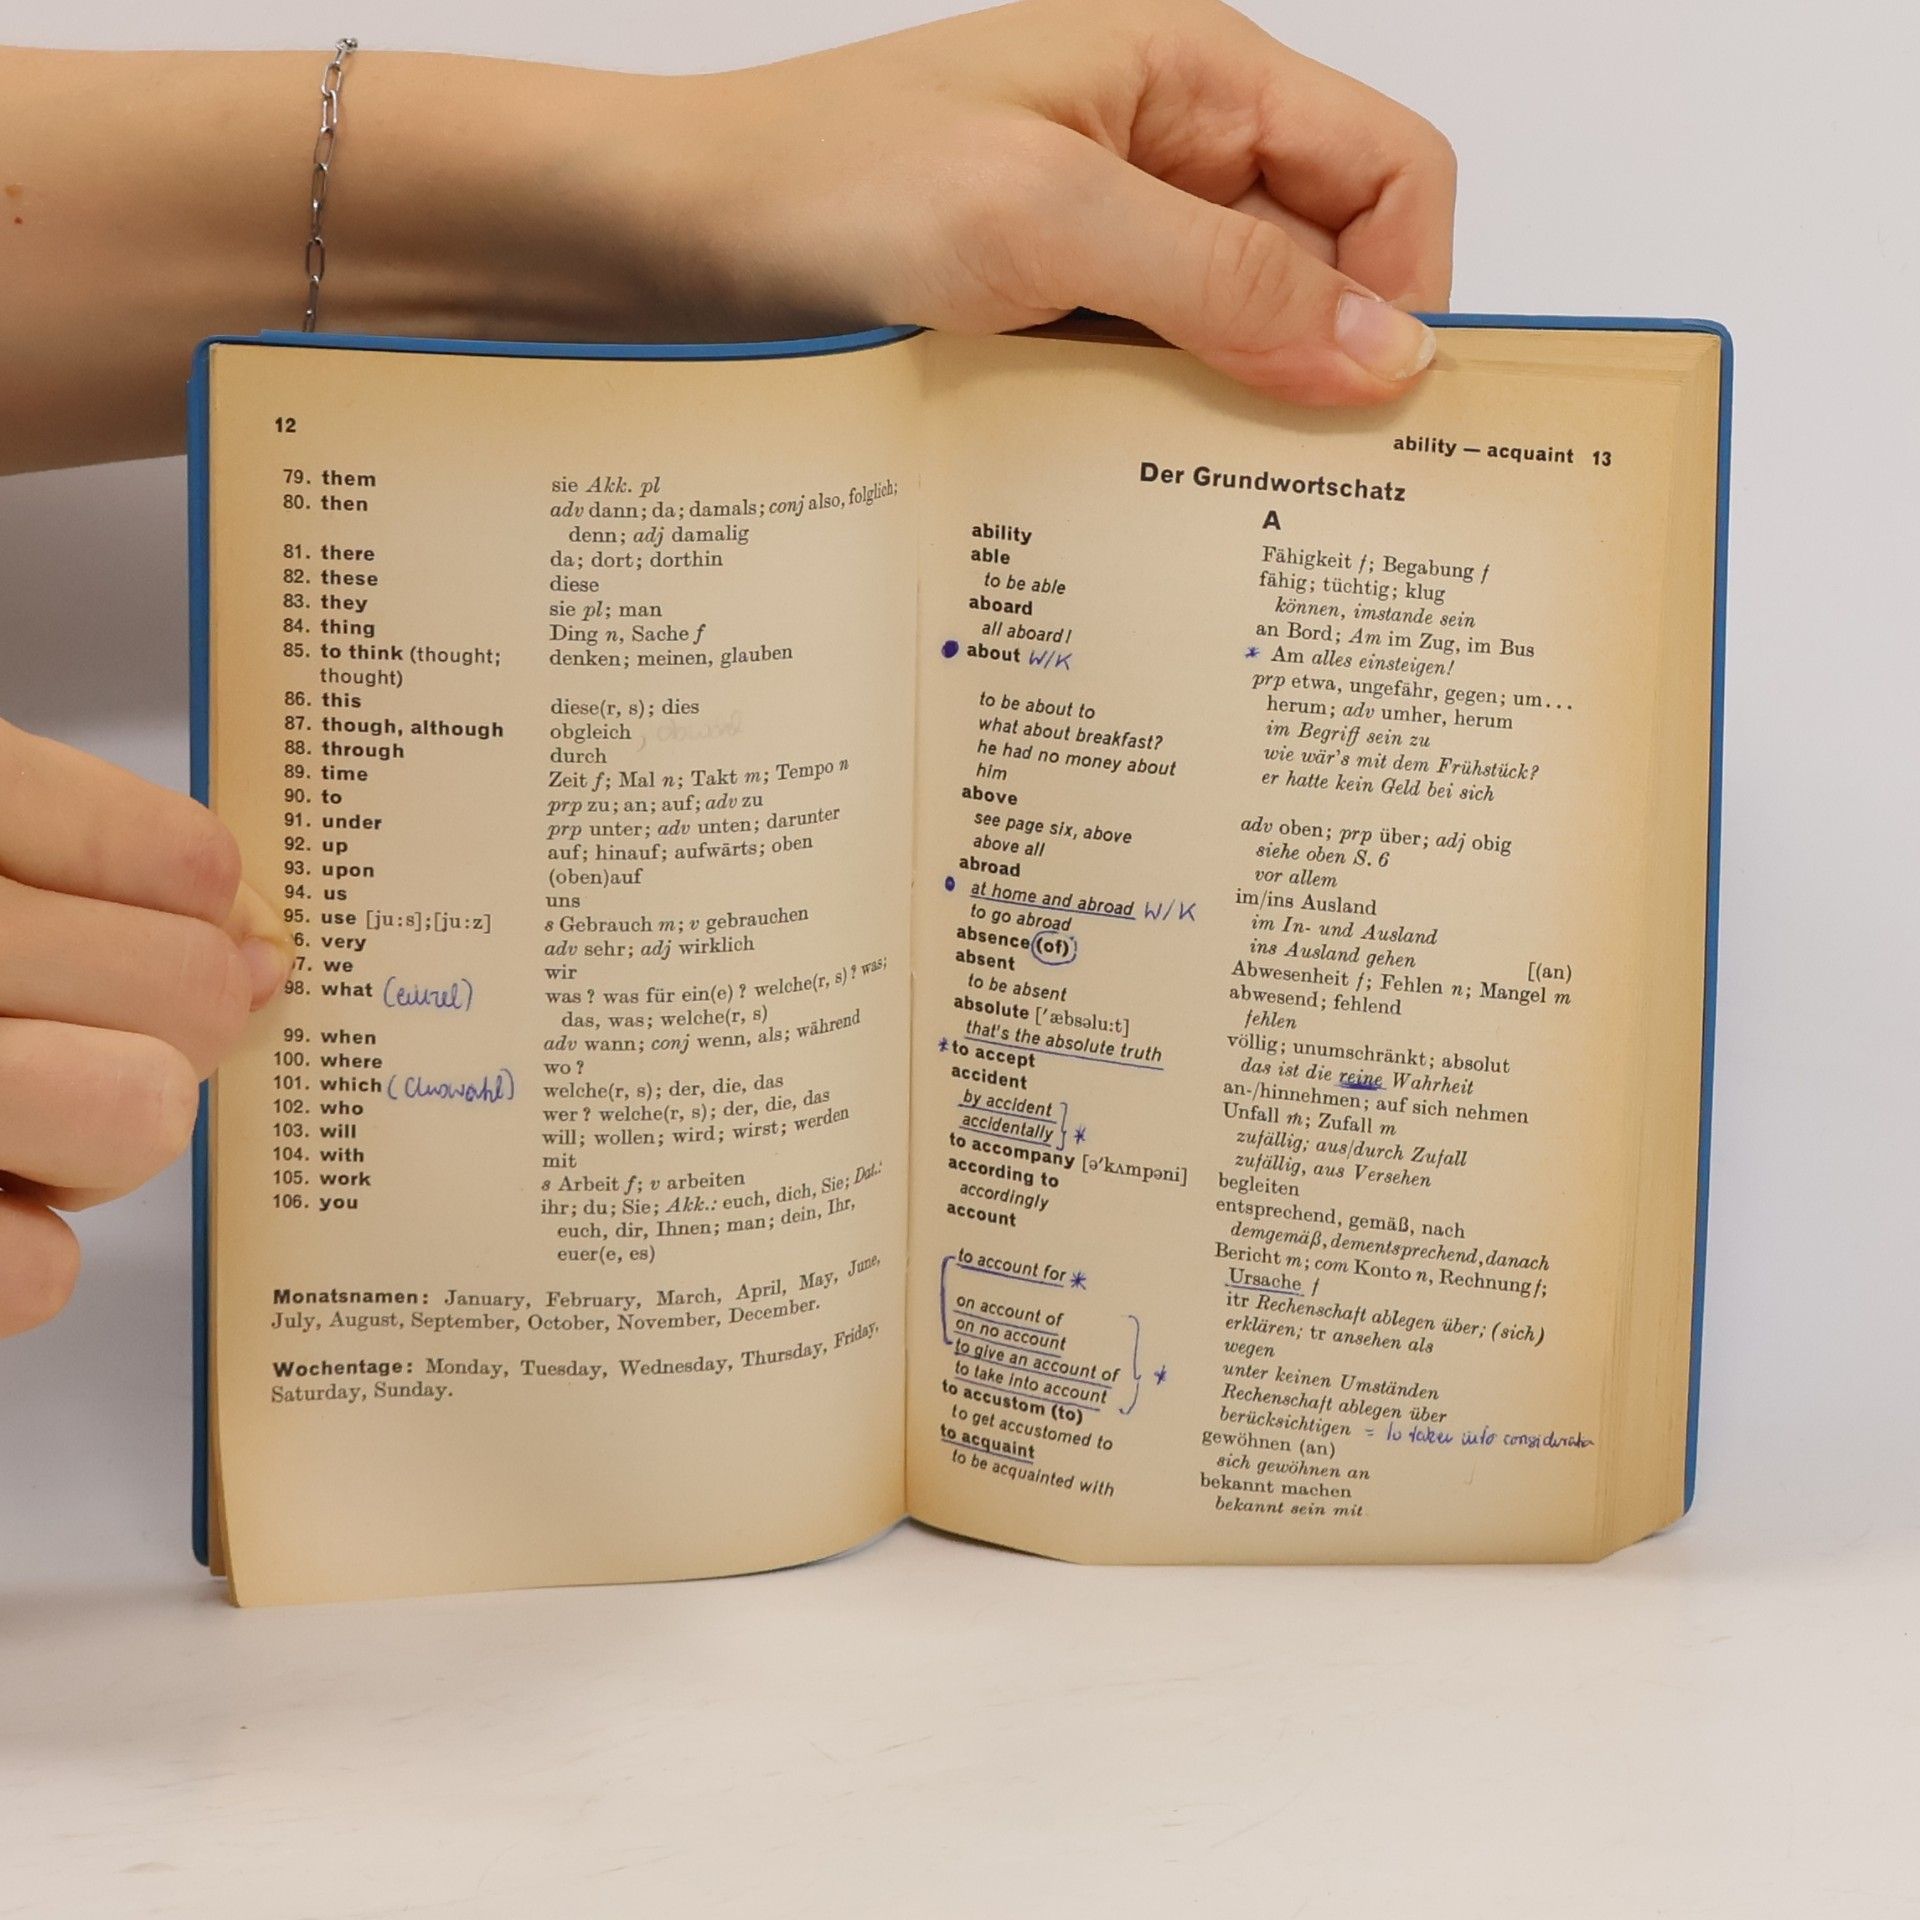 12
79. them sie Akk. pl
80. then adv dann; da; damals; conj also, folglich;
denn; adj damalig
81. there da; dort; dorthin
82. these diese
83. they sie pl; man
84. thing Ding n, Sache f
85. to think (thought; denken; meinen, glauben
thought)
86. this diese(r, s); dies
87. though, although obgleich
88. through durch
89. time Zeit f; Mal n; Takt m; Tempo n
90. to prp zu; an; auf; adv zu
91. under prp unter; adv unten; darunter
92. up auf; hinauf; aufwärts; oben
93. upon (oben)auf
94. us uns
95. use [ju:s];[ju:z] s Gebrauch m; v gebrauchen
6. very adv sehr; adj wirklich
7. we wir
98. what (einzel) was? was für ein(e)? welche(r, s)? was;
das, was; welche(r, s)
99. when adv wann; conj wenn, als; während
100. where wo?
101. which (Auswahl) welche(r, s); der, die, das
102. who wer? welche(r, s); der, die, das
103. will will; wollen; wird; wirst; werden
104. with mit
105. work s Arbeit f; v arbeiten
106. you ihr; du; Sie; Akk.: euch, dich, Sie; Dat.:
euch, dir, Ihnen; man; dein, Ihr,
euer(e, es)
Monatsnamen: January, February, March, April, May, June,
July, August, September, October, November, December.
Wochentage: Monday, Tuesday, Wednesday, Thursday, Friday,
Saturday, Sunday.
ability — acquaint 13
Der Grundwortschatz
A
ability Fähigkeit f; Begabung f
able fähig; tüchtig; klug
to be able können, imstande sein
aboard an Bord; Am im Zug, im Bus
all aboard! * Am alles einsteigen!
about W/K prp etwa, ungefähr, gegen; um...
herum; adv umher, herum
to be about to im Begriff sein zu
what about breakfast? wie wär's mit dem Frühstück?
he had no money about er hatte kein Geld bei sich
him
above adv oben; prp über; adj obig
see page six, above siehe oben S. 6
above all vor allem
abroad im/ins Ausland
at home and abroad W/K im In- und Ausland
to go abroad ins Ausland gehen [(an)
absence (of) Abwesenheit f; Fehlen n; Mangel m
absent abwesend; fehlend
to be absent fehlen
absolute ['æbsəlu:t] völlig; unumschränkt; absolut
that's the absolute truth das ist die reine Wahrheit
* to accept an-/hinnehmen; auf sich nehmen
accident Unfall m; Zufall m
by accident zufällig; aus/durch Zufall
accidentally * zufällig, aus Versehen
to accompany [ə'kʌmpəni] begleiten
according to entsprechend, gemäß, nach
accordingly demgemäß, dementsprechend, danach
account Bericht m; com Konto n, Rechnung f;
Ursache f
to account for * itr Rechenschaft ablegen über; (sich)
erklären; tr ansehen als
on account of wegen
on no account unter keinen Umständen
to give an account of * Rechenschaft ablegen über
to take into account berücksichtigen = to take into consideration
to accustom (to) gewöhnen (an)
to get accustomed to sich gewöhnen an
to acquaint bekannt machen
to be acquainted with bekannt sein mit